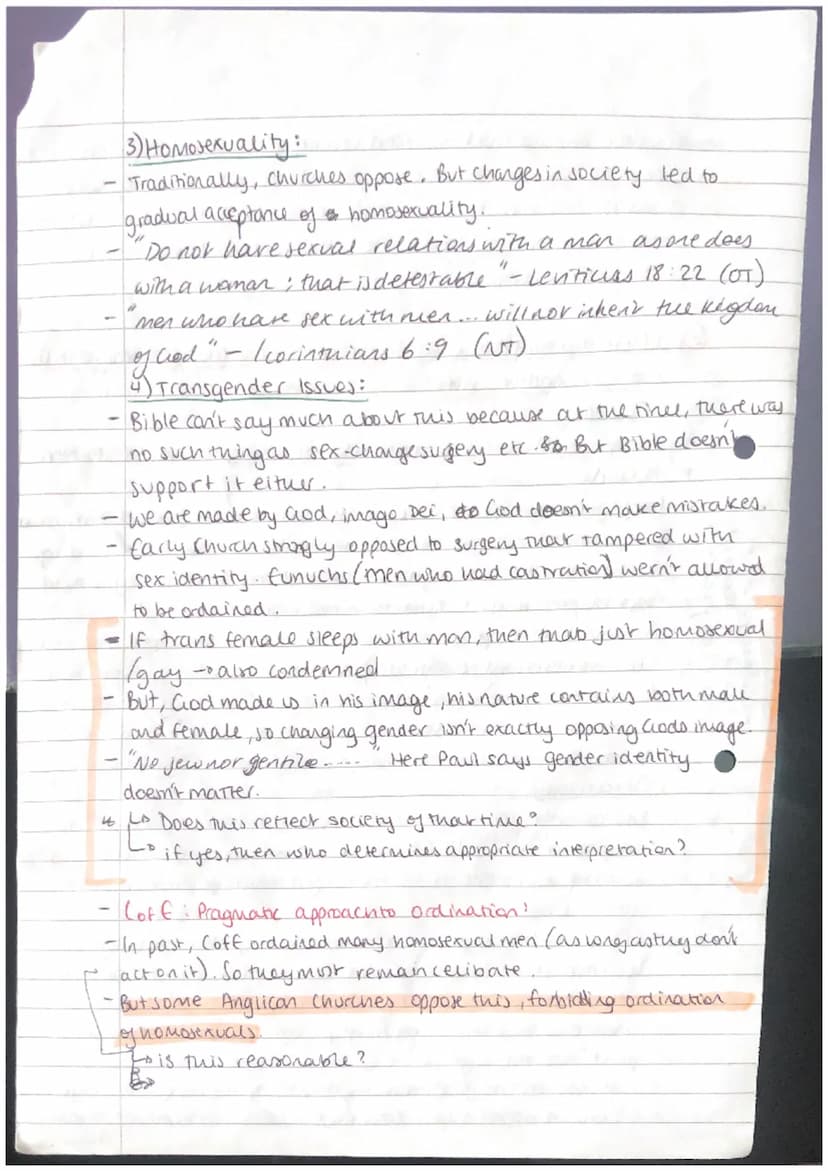 3) Homosexuality:
- Traditionally, churches oppose. But changes in society led to
gradual acceptance of homosexuality.
- "Do not have sexual relations with a man as one does
with a woman; that is detestable" - Leviticus 18:22 (OT)
- "men who have sex with men... will not inherit the kigdom
of God" - 1 corinthians 6:9 (NT)
4) Transgender Issues:
- Bible can't say much about this because at the time, there was
no such thing as sex-change surgery etc. But Bible doesn't
support it either.
- We are made by God, imago Dei, God doesn't make mistakes.
- Early Church strongly opposed to surgery that tampered with
sex identity. Eunuchs (men who had castration) wern't allowed
to be ordained.
- If trans female sleeps with man, then thats just homosexual
/gay → also condemned
- But, God made us in his image, his nature contains both male
and female, so changing gender isn't exactly opposing Gods image.
- "No jew nor gentile....." Here Paul says gender identity
doesn't matter.
↳ Does this reflect society of that time?
↳ if yes, then who determines appropriate interpretation?
- CofE: Pragmatic approach to ordination:
- In past, CofE ordained many homosexual men (as long as they don't
act on it). So they must remain celibate.
- But some Anglican Churches oppose this, forbidding ordination
of homosexuals.
↳ is this reasonable?